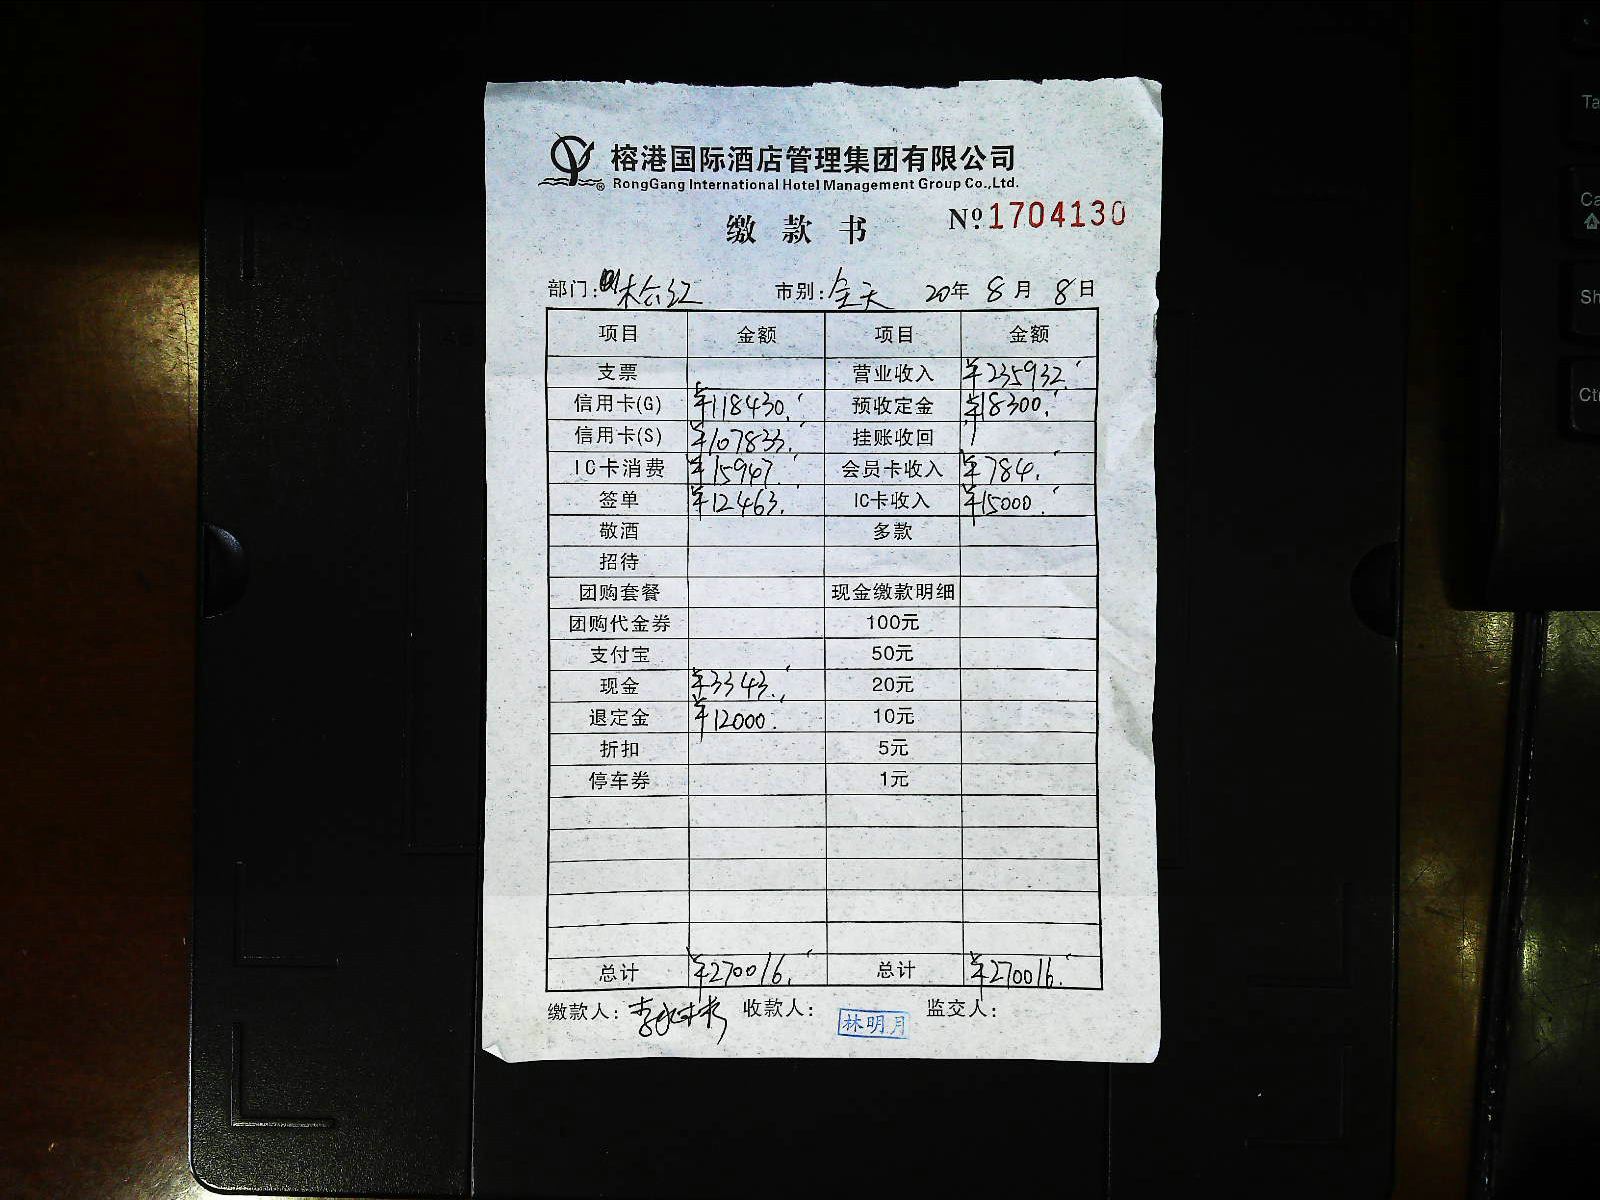 榕港国际酒店管理集团有限公司
RongGang International Hotel Management Group Co.,Ltd.
缴款书 №1704130
部门: 市别:全天 20年8月8日
项目 金额 项目 金额
支票 营业收入 ¥235932.
信用卡(G) ¥118430. 预收定金 ¥18300.
信用卡(S) ¥107833. 挂账收回 /
IC卡消费 ¥15947. 会员卡收入 ¥784.
签单 ¥12463. IC卡收入 ¥15000.
敬酒 多款
招待
团购套餐 现金缴款明细
团购代金券 100元
支付宝 50元
现金 ¥3343. 20元
退定金 ¥12000. 10元
折扣 5元
停车券 1元
总计 ¥270016. 总计 ¥270016.
缴款人: 收款人:林明月 监交人:
Ta
Ca
Sh
Ct